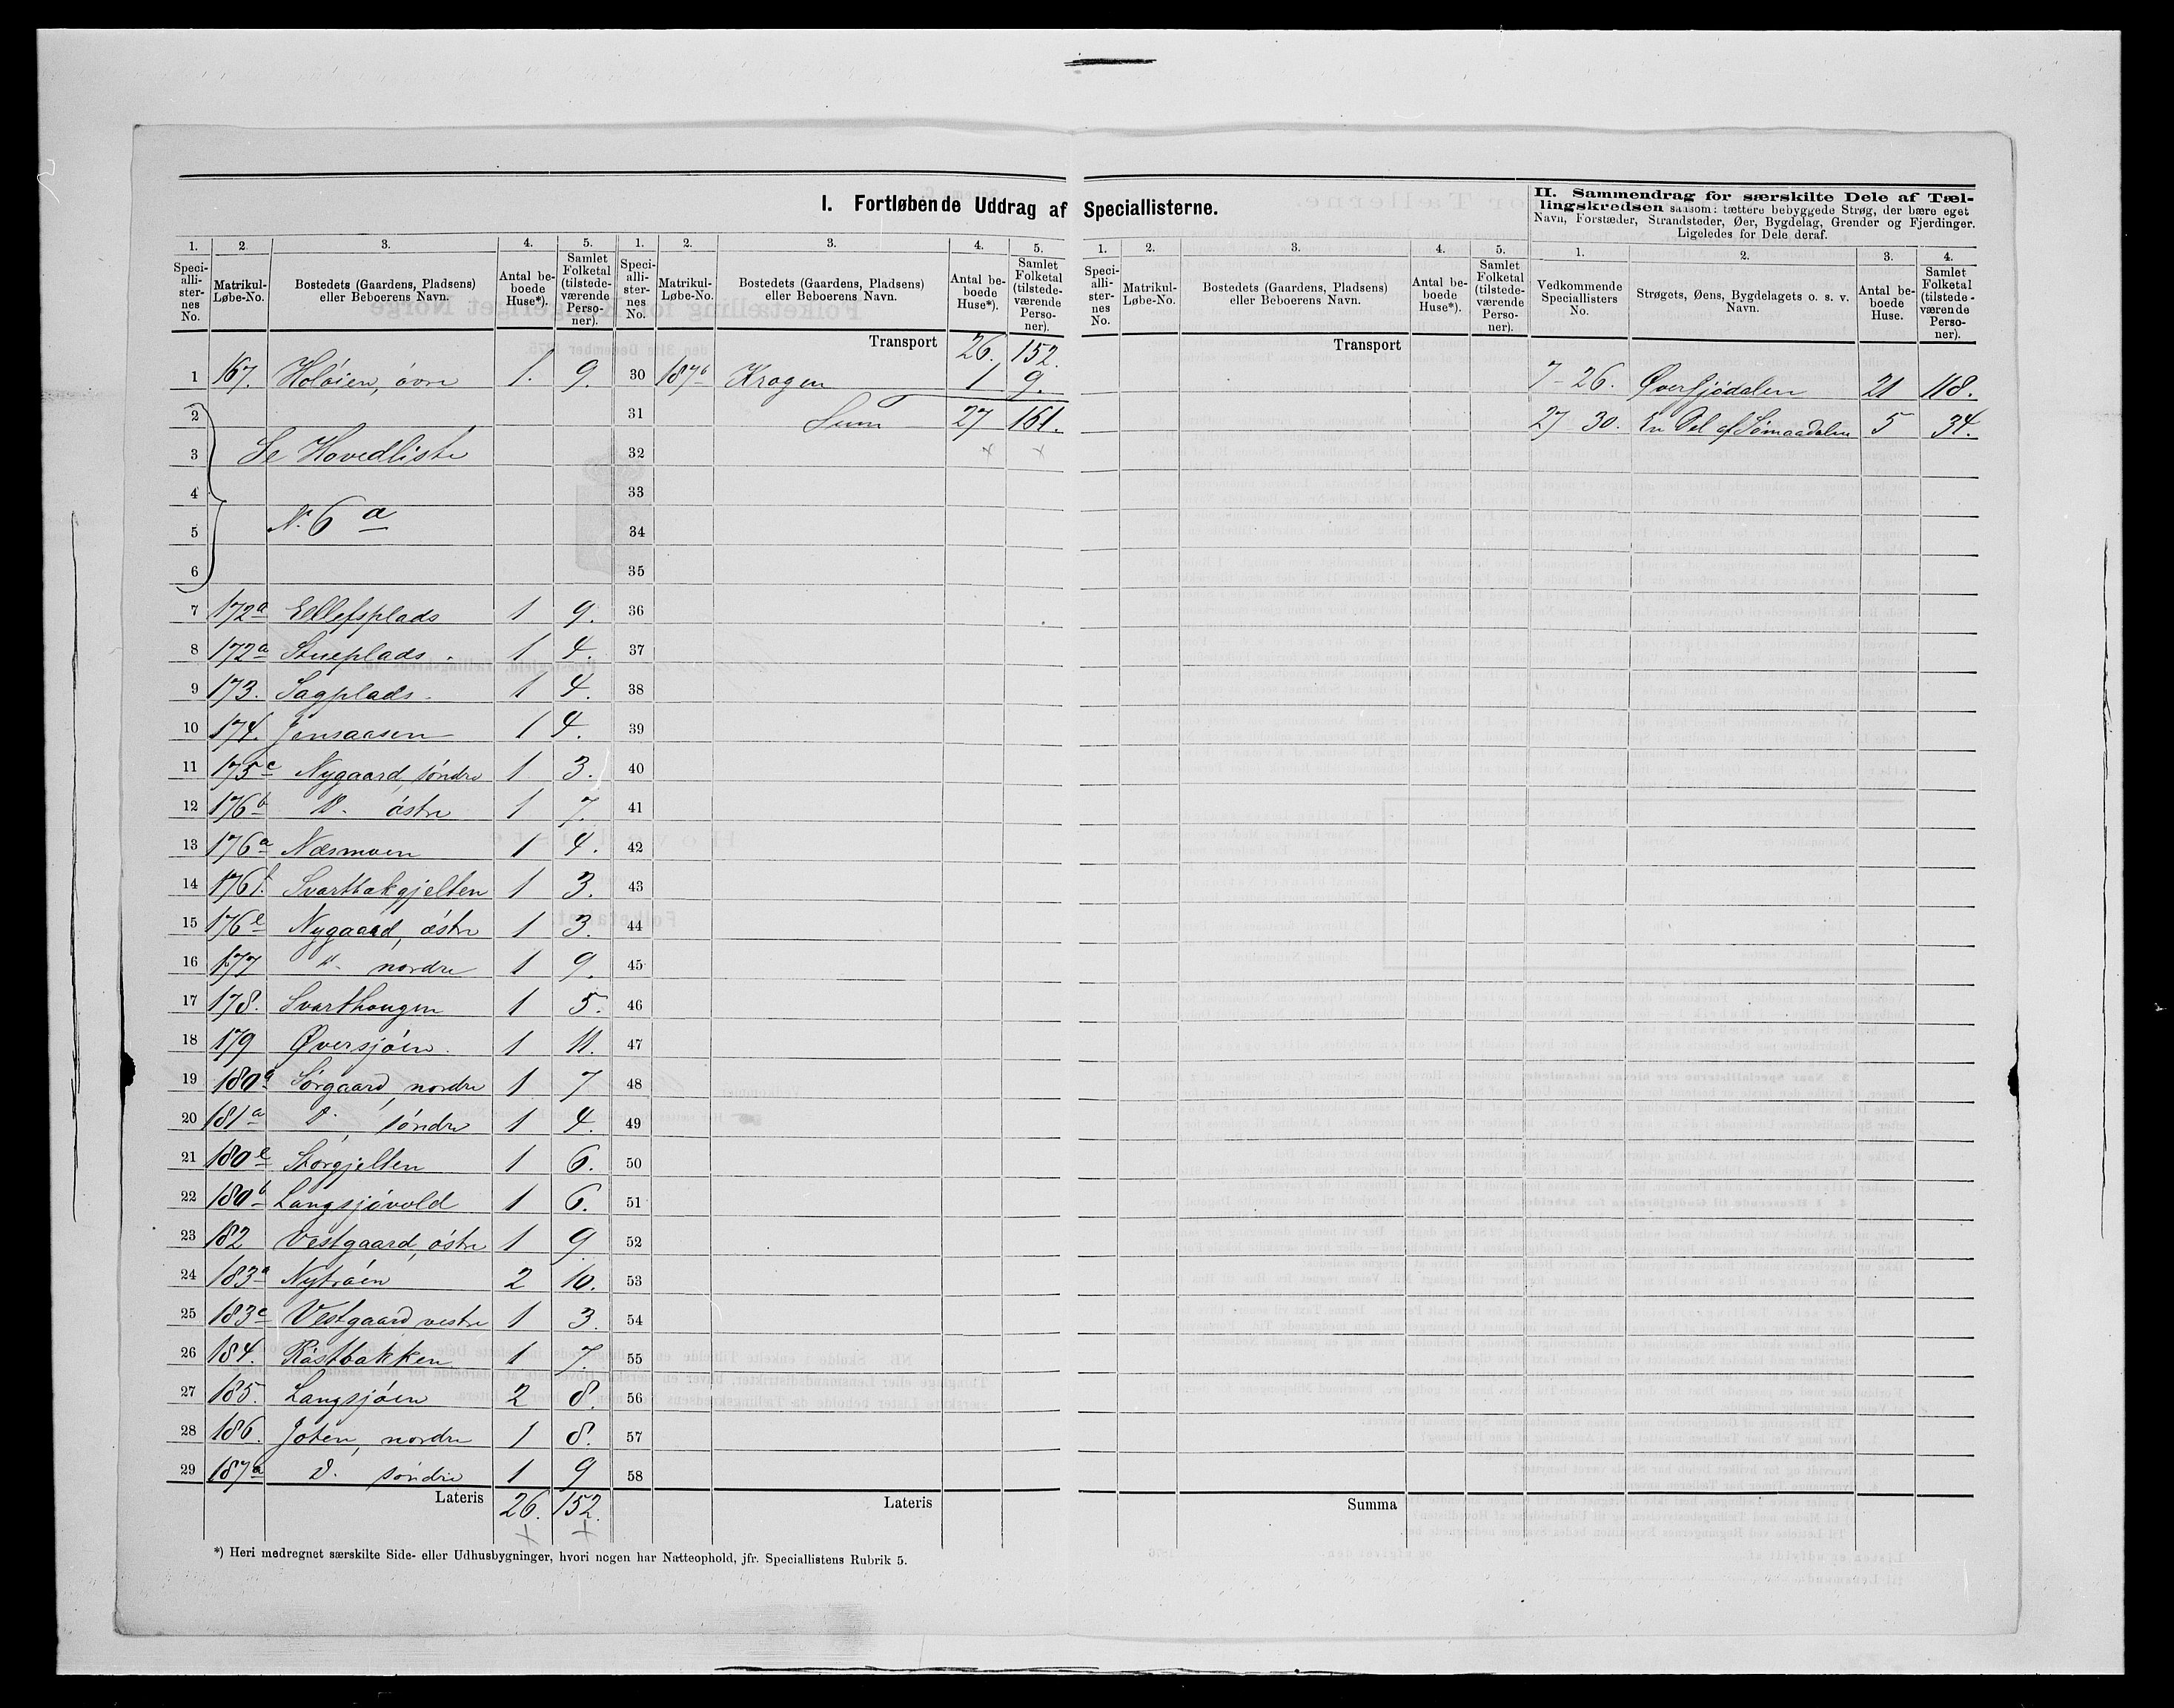 I. Fortløbende Uddrag af Speciallisterne.
1. 2. 3. 4. 5.
Speciallisternes No. Matrikul-Løbe-No. Bostedets (Gaardens, Pladsens) eller Beboerens Navn. Antal beboede Huse*). Samlet Folketal (tilstedeværende Personer).
1 167. Holøien, øvre 1. 9.
2
3 Se Hovedliste
4
5 N. 6 a
6
7 172a Ellefsplads 1 9.
8 172a Stueplads. 1 4.
9 173. Sagplads. 1 4.
10 174. Jensaasen 1 4.
11 175c Nygaard, søndre 1 3.
12 176b D. østre 1 7.
13 176a Næsmoen 1 4.
14 176f. Svartbakgjelten 1 3.
15 176e Nygaard, østre 1 3.
16 177 D. nordre 1 9.
17 178. Svarthougen 1 5.
18 179 Øversjøen. 1 11.
19 180a Sørgaard, nordre 1 7
20 181a D. søndre 1 4.
21 180e Storgjelten 1 6.
22 180b Langsjøvold 1 6.
23 182 Vestgaard, østre 1 9
24 183a Nytrøen 2 10.
25 183c Vestgaard vestre 1 3.
26 184. Røstbakken 1 7.
27 185. Langsjøen 2 8.
28 186. Joten, nordre 1 8.
29 187a D. søndre 1 9
Lateris 26. 152.
*) Heri medregnet særskilte Side- eller Udhusbygninger, hvori nogen har Natteophold, jfr. Speciallistens Rubrik 5.
1. 2. 3. 4. 5.
Speciallisternes No. Matrikul-Løbe-No. Bostedets (Gaardens, Pladsens) eller Beboerens Navn. Antal beboede Huse*). Samlet Folketal (tilstedeværende Personer).
Transport 26. 152.
30 187b Krogen 1 9.
31 Sum 27 161.
32
33
34
35
36
37
38
39
40
41
42
43
44
45
46
47
48
49
50
51
52
53
54
55
56
57
58
Lateris
1. 2. 3. 4. 5.
Speciallisternes No. Matrikul-Løbe-No. Bostedets (Gaardens, Pladsens) eller Beboerens Navn. Antal beboede Huse*). Samlet Folketal (tilstedeværende Personer).
Transport
Summa
II. Sammendrag for særskilte Dele af Tællingskredsen saasom: tættere bebyggede Strøg, der bære eget Navn, Forstæder, Strandsteder, Øer, Bygdelag, Grender og Fjerdinger. Ligeledes for Dele deraf.
1. 2. 3. 4.
Vedkommende Speciallisters No. Strøgets, Øens, Bygdelagets o. s. v. Navn. Antal beboede Huse. Samlet Folketal (tilstedeværende Personer).
7-26. Øversjødalen 21 118.
27-30. En Del af Sømaadalen 5 34.